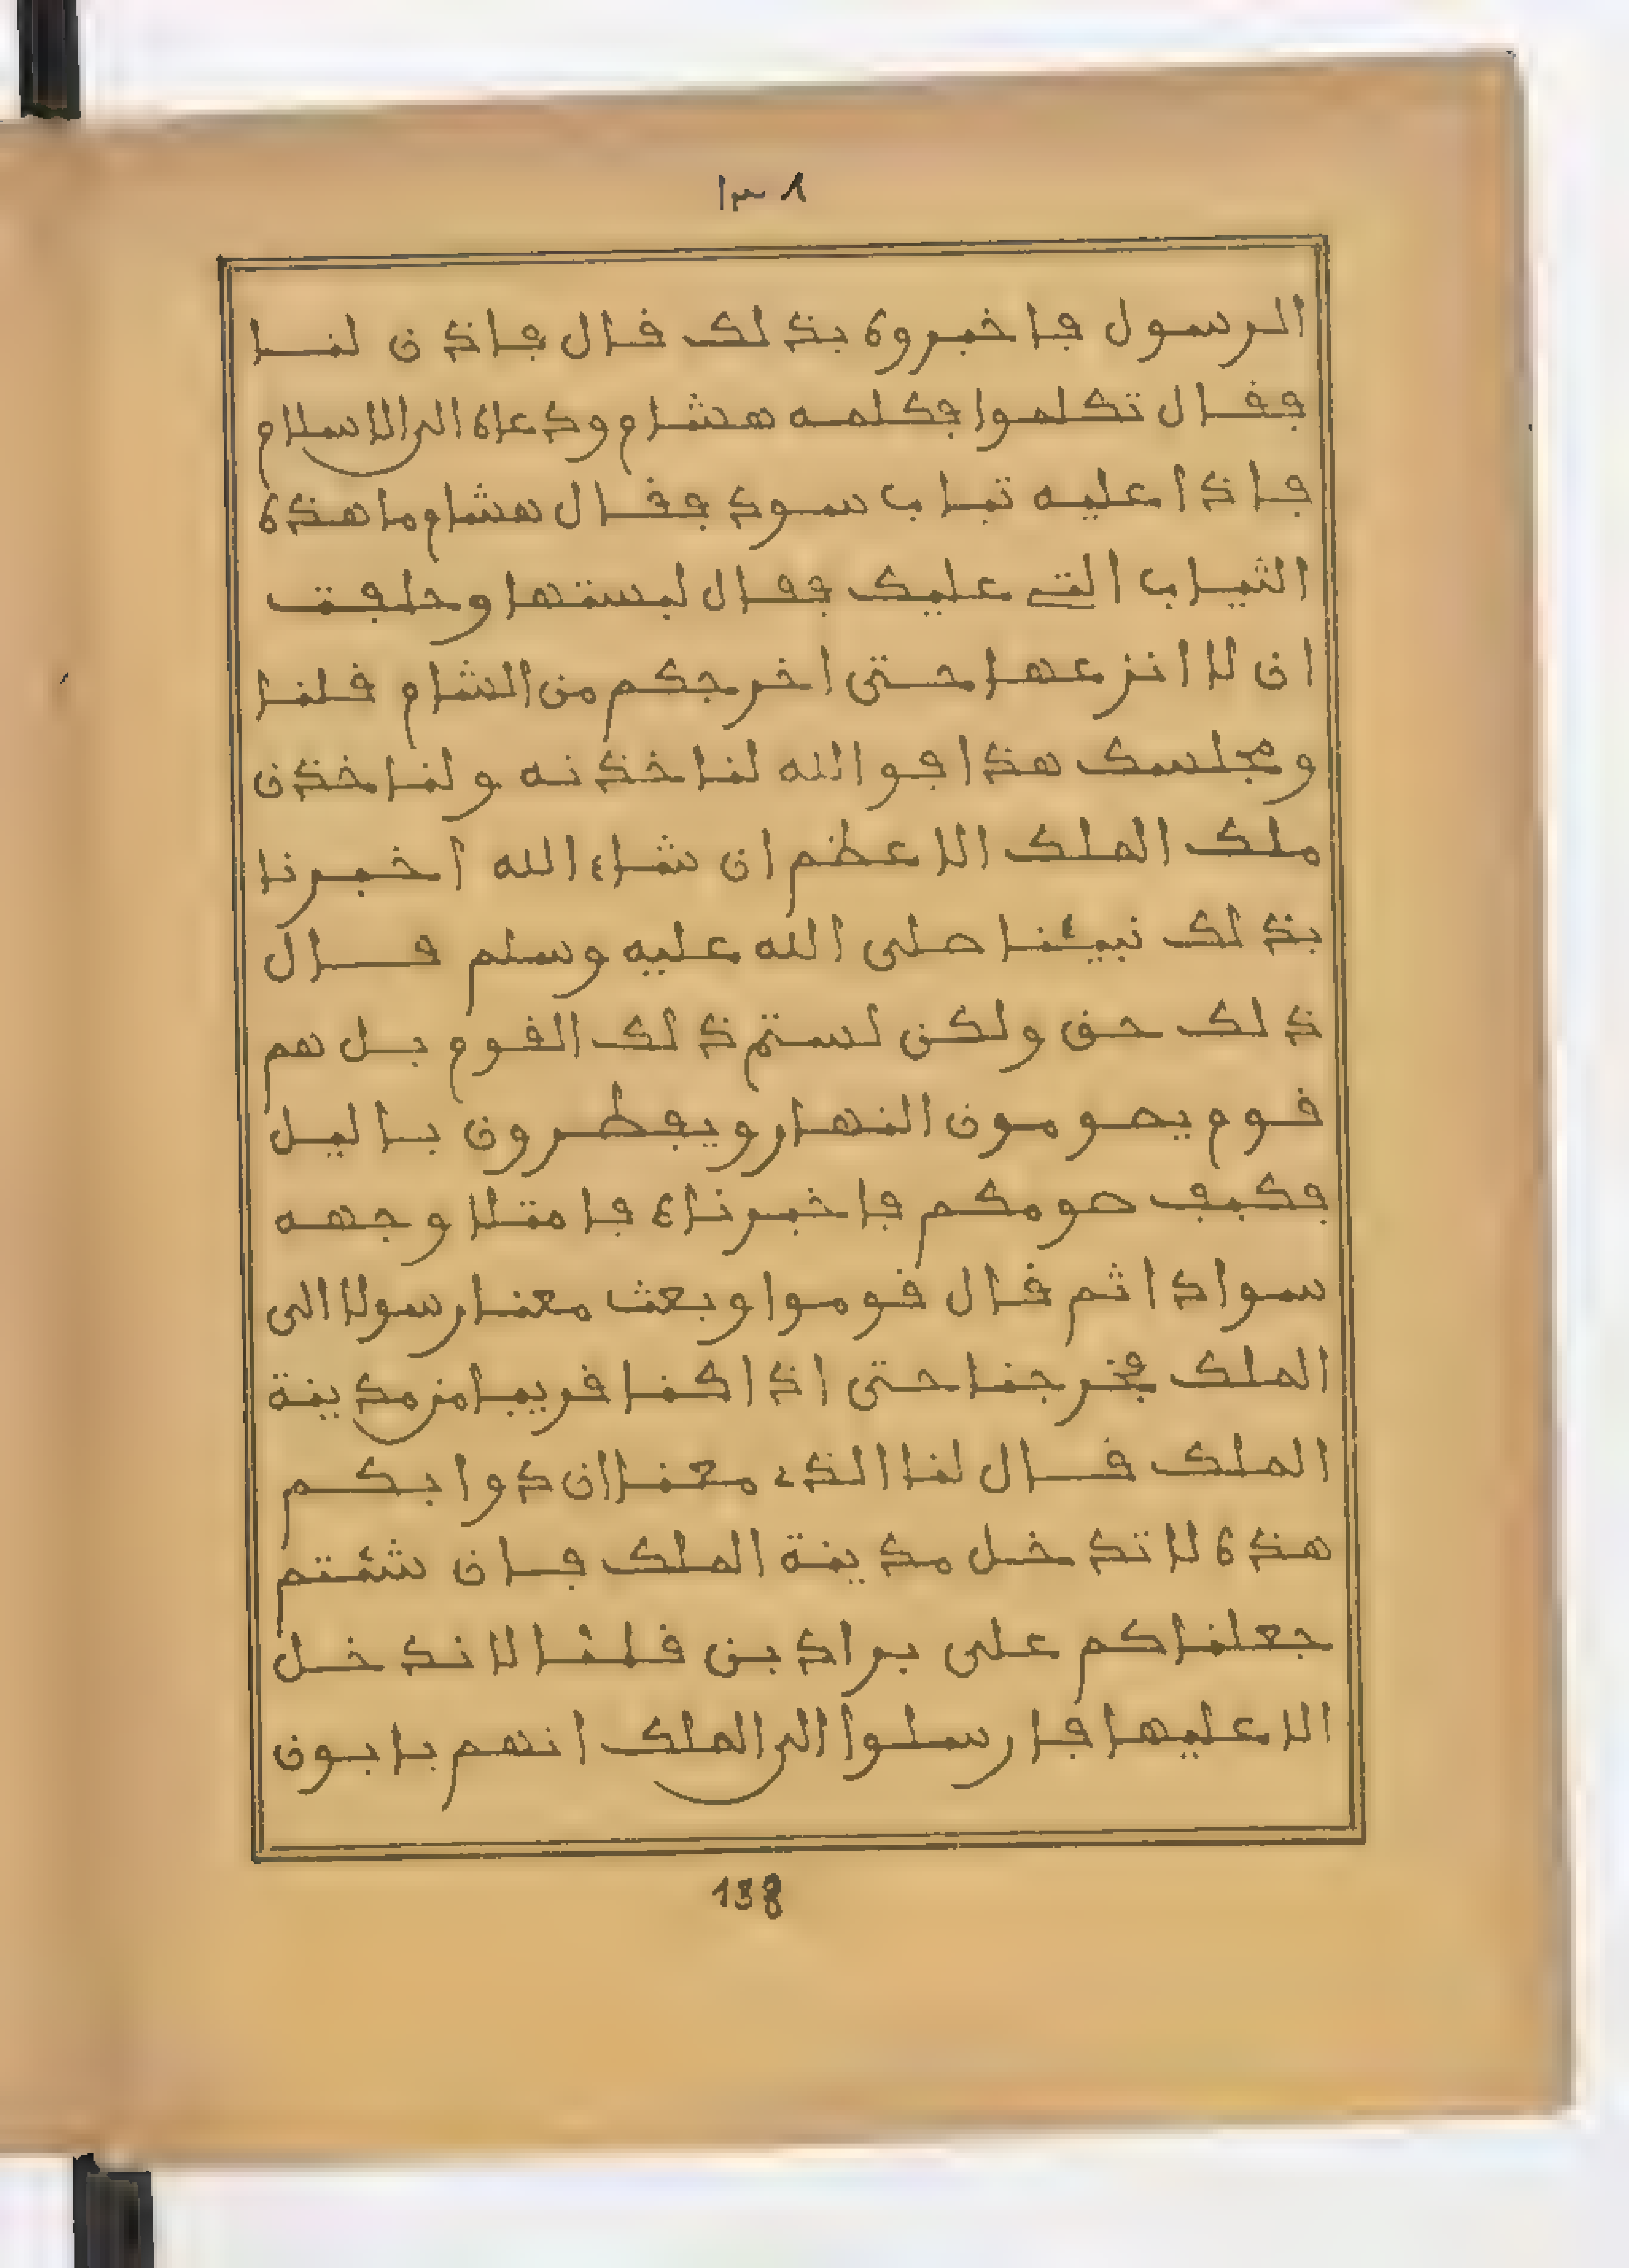 ١٣٨
الرسول فاخبروه بذلك فال فاذن لنا
ففال تكلموا فكلمه هشام ودعاه الى الاسلام
فاذا عليه ثياب سود ففال هشام ما هذه
الثياب التي عليك ففال لبستها وحلفت
ان لا انزعها حتى اخرجكم من الشام فلنا
ومجلسك هذا فوالله لناخذنه ولناخذن
ملك الملك الاعظم ان شاء الله أخبرنا
بذلك نبيئنا صلى الله عليه وسلم فال
ذلك حق ولكن لستم ذلك الفوم بل هم
فوم يصومون النهار ويفطرون باليل
فكيف صومكم فاخبرناه فامتلا وجهه
سوادا ثم فال فوموا وبعث معنا رسولا الى
الملك فخرجنا حتى اذا كنا فريبا من مدينة
الملك فال لنا الذي معنا ان دوابكم
هذه لا تدخل مدينة الملك فان شئتم
جعلناكم على براذين فلنا لا ندخل
الا عليها فارسلوا الى الملك انهم يابون
138